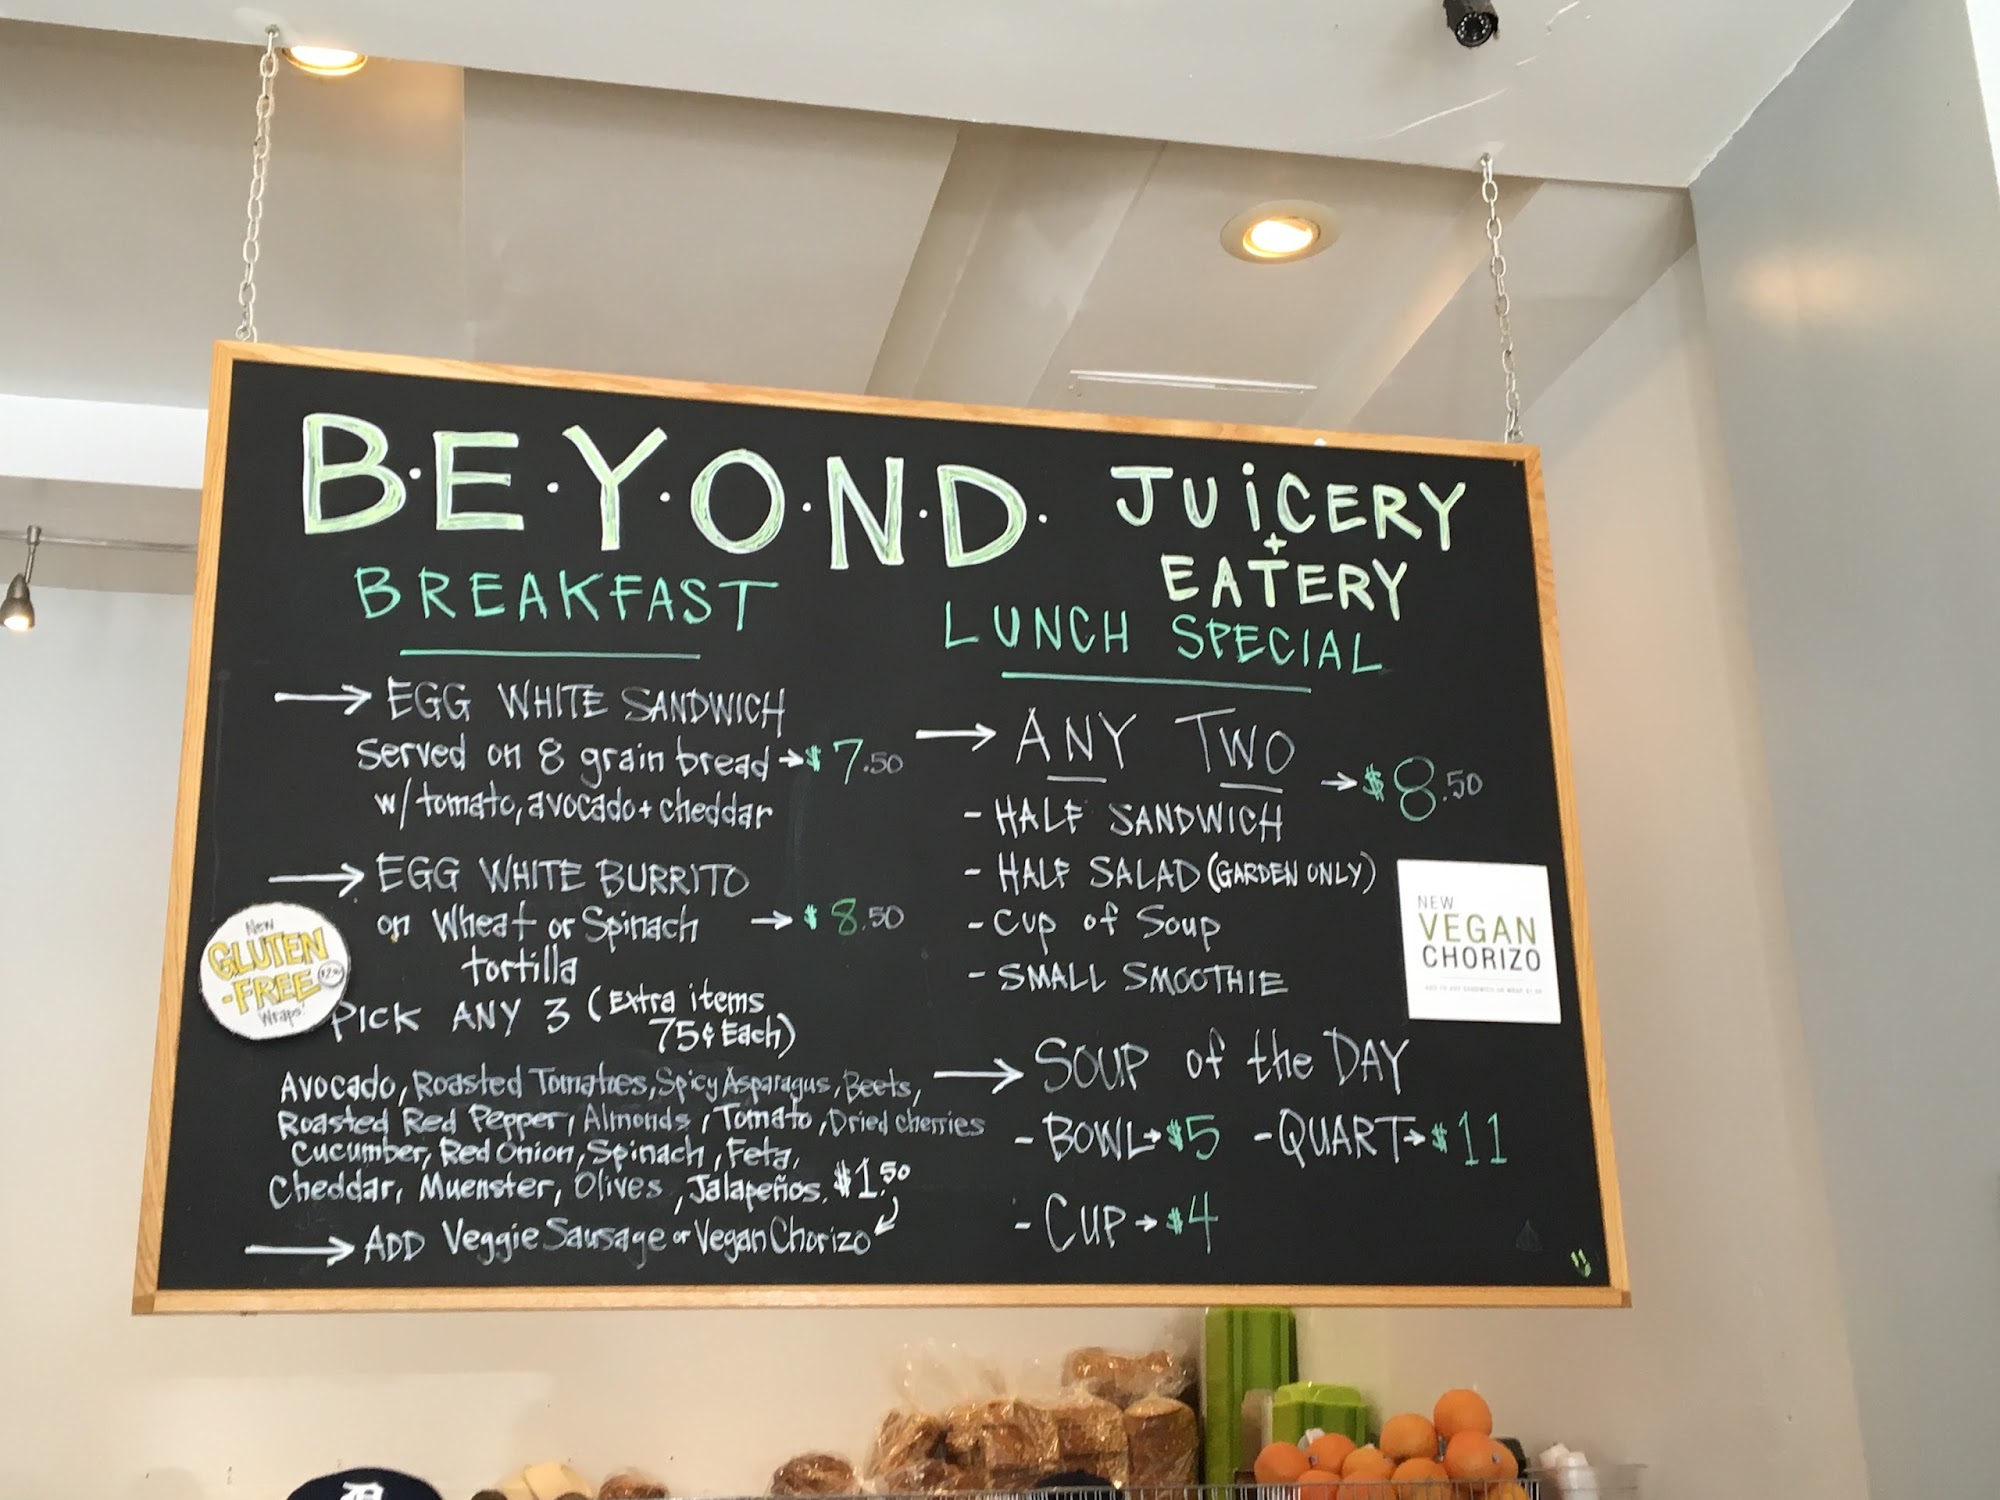 B·E·Y·O·N·D· JUiCERY
+
EATERY
BREAKFAST
→ EGG WHITE SANDWICH
served on 8 grain bread → $7.50
w/ tomato, avocado + cheddar
→ EGG WHITE BURRITO
on Wheat or Spinach → $8.50
tortilla
PICK ANY 3 (Extra items
75¢ Each)
Avocado, Roasted Tomatoes, Spicy Asparagus, Beets,
Roasted Red Pepper, Almonds, Tomato, Dried cherries
Cucumber, Red Onion, Spinach, Feta,
Cheddar, Muenster, Olives, Jalapeños. $1.50
→ ADD Veggie Sausage or Vegan Chorizo
New
GLUTEN
-FREE
Wraps!
LUNCH SPECIAL
→ ANY TWO → $8.50
- HALF SANDWICH
- HALF SALAD (GARDEN ONLY)
- Cup of Soup
- SMALL SMOOTHIE
→ SOUP of the DAY
- BOWL → $5 - QUART → $11
- CUP → $4
NEW
VEGAN
CHORIZO